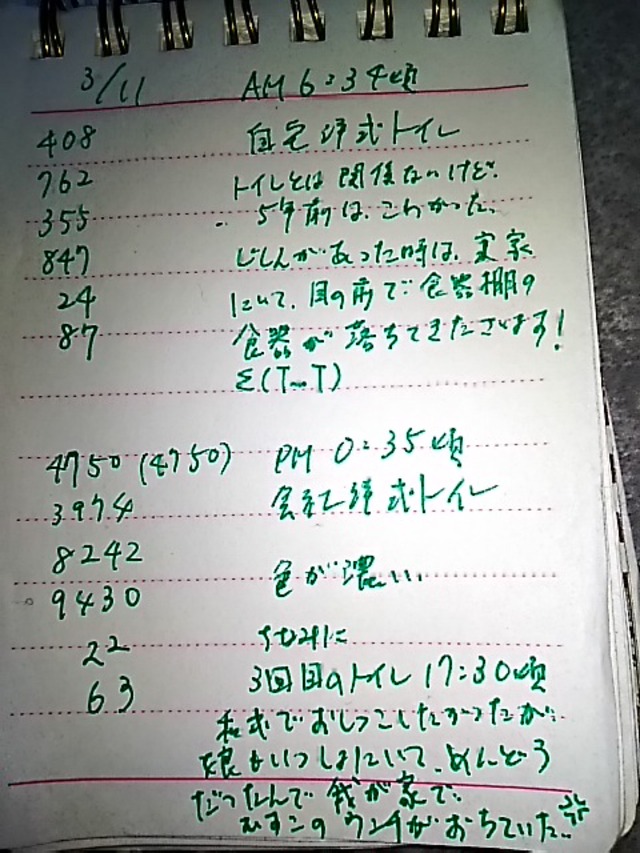 3/11 AM 6:34頃
408 自宅洋式トイレ
762 トイレとは関係ないけど、
355 5年前は、こわかった。
847 じしんがあった時は、実家
24 にいて、目の前で食器棚の
87 食器が落ちてきたざます!
Σ(T_T)
4750 (4750) PM 0:35頃
3974 会社洋式トイレ
8242
9430 色が濃い、
22 ちなみに
63 3回目のトイレ 17:30頃
和式でおしっこしたかったが、
娘もいっしょにいて、めんどう
だったんで 我が家で、
むすこのウンチがおちていた。